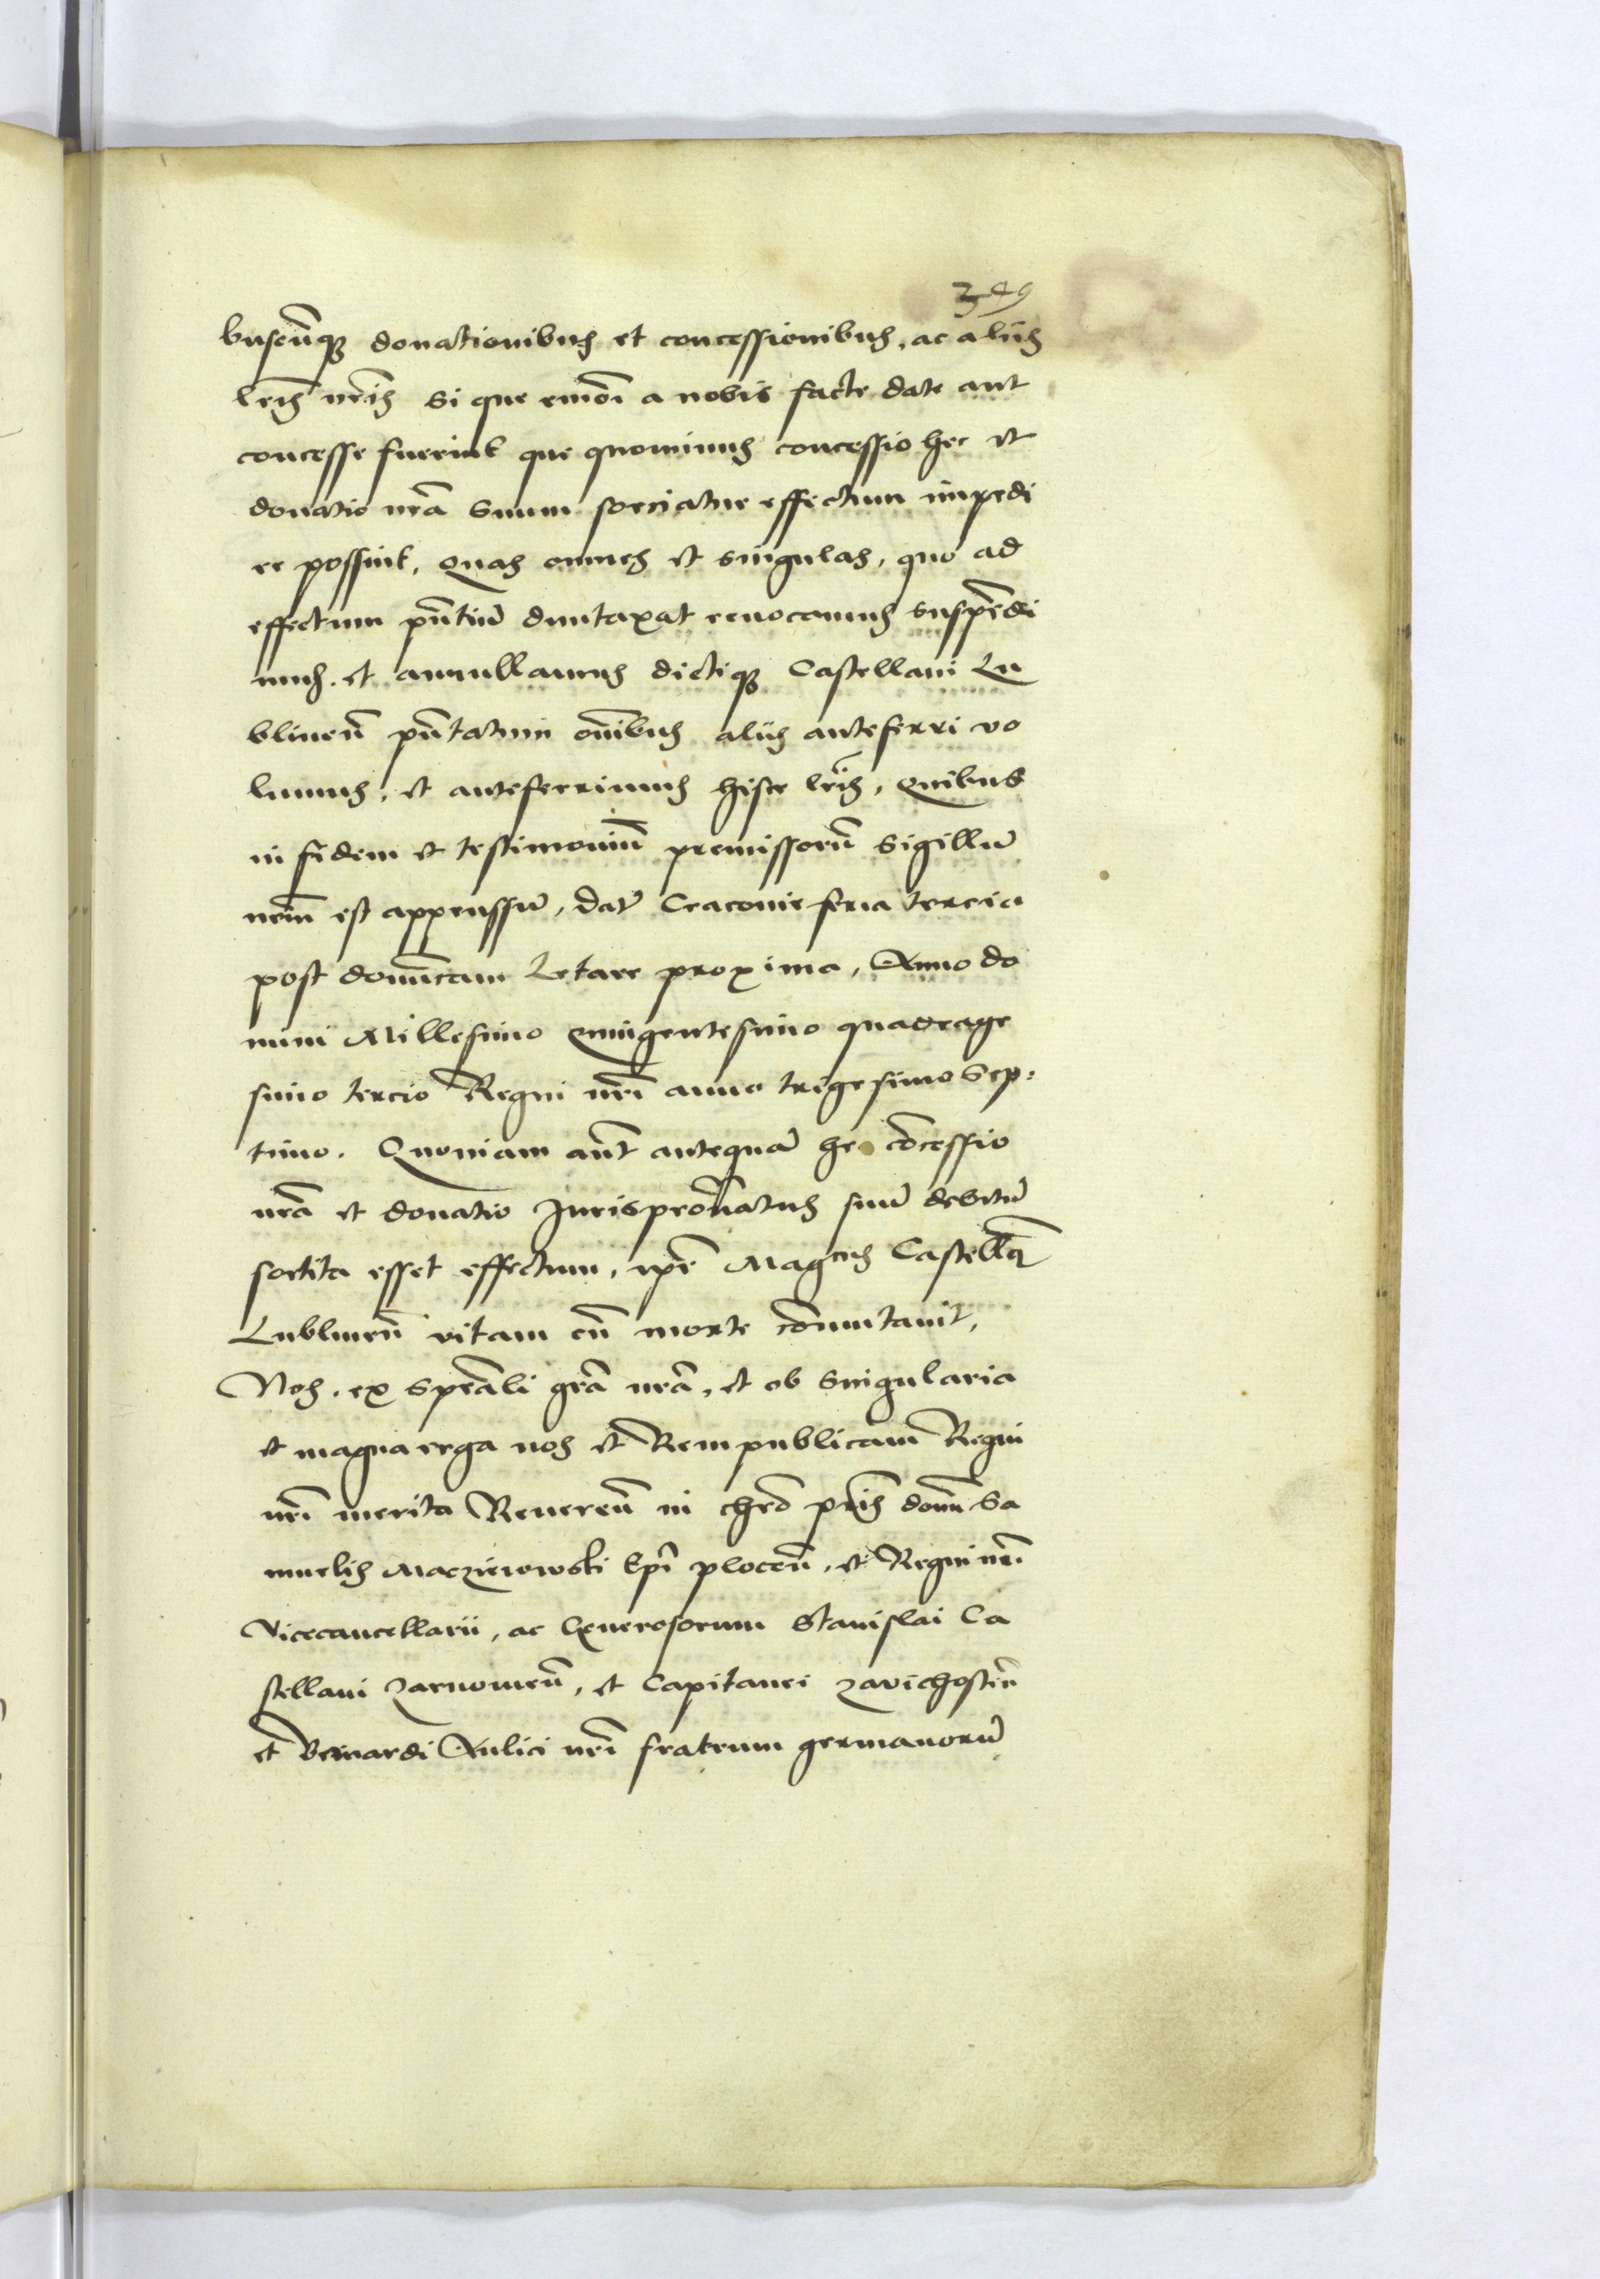 349
buscūq donationibus et concessionibus, ac aliis
lr̄is nr̄is si que a nobis facte date aut
concesse fuerint que quominus concessio hec et
donatio nrā suum sorciatur effectum impedi
re possint, quas omnes et singulas, quo ad
effectum pn̄tiū duntaxat revocamus suspēdi
mus et annullamus dictiq Castellani Lu
blinen̄ pn̄tatum om̄ibus aliis anteferri vo
lumus, et anteferrimus hisce lr̄is, Quibus
in fidem et testimoniū premissorū Sigillū
nr̄m est appenssū, dat̄ Cracovie feria tercia
post domīcam Letare proxima, Anno do
mini Millesimo quingentesimo quadrage
simo tercio Regni nr̄i anno trigesimo sep:
timo. Quoniam aūt antequā hec cōcessio
nrā et donatio Jurispronatus suū debitū
sortita esset effectum, ip̄e Magcus Castellan̄
Lublinen̄ vitam cū morte cōmutavit,
Nos, ex sp̄eāli grā nrā, et ob singularia
et magna erga nos et Rempublicam Regni
nr̄i merita Reveren̄ in chr̄o pr̄is domī Sa
muelis Maczieiowski Ep̄i plocen̄, et Regni nr̄i
Vicecancellarii, ac Generosorum Stanislai Ca
stellani Zarnowen̄, et Capitanei zavichosten̄
et Bernardi Aulici nr̄i fratrum germanorū